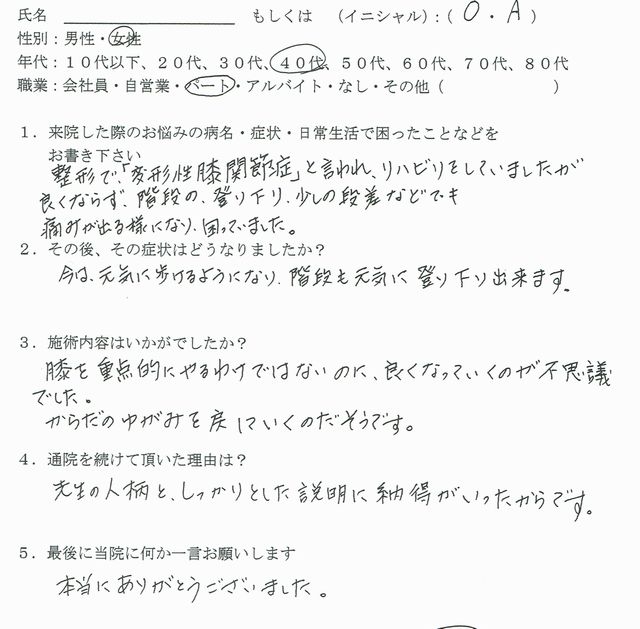 氏名 もしくは (イニシャル):( O・A )
性別:男性・女性
年代:10代以下、20代、30代、40代、50代、60代、70代、80代
職業:会社員・自営業・パート・アルバイト・なし・その他( )
1.来院した際のお悩みの病名・症状・日常生活で困ったことなどを
お書き下さい
整形で、「変形性膝関節症」と言われ、リハビリをしていましたが
良くならず、階段の、登り下り、少しの段差などでも
痛みが出る様になり、困っていました。
2.その後、その症状はどうなりましたか?
今は、元気に歩けるようになり、階段も元気に登り下り出来ます。
3.施術内容はいかがでしたか?
膝を重点的にやるわけではないのに、良くなっていくのが不思議
でした。
からだのゆがみを戻していくのだそうです。
4.通院を続けて頂いた理由は?
先生の人柄と、しっかりとした説明に納得がいったからです。
5.最後に当院に何か一言お願いします
本当にありがとうございました。